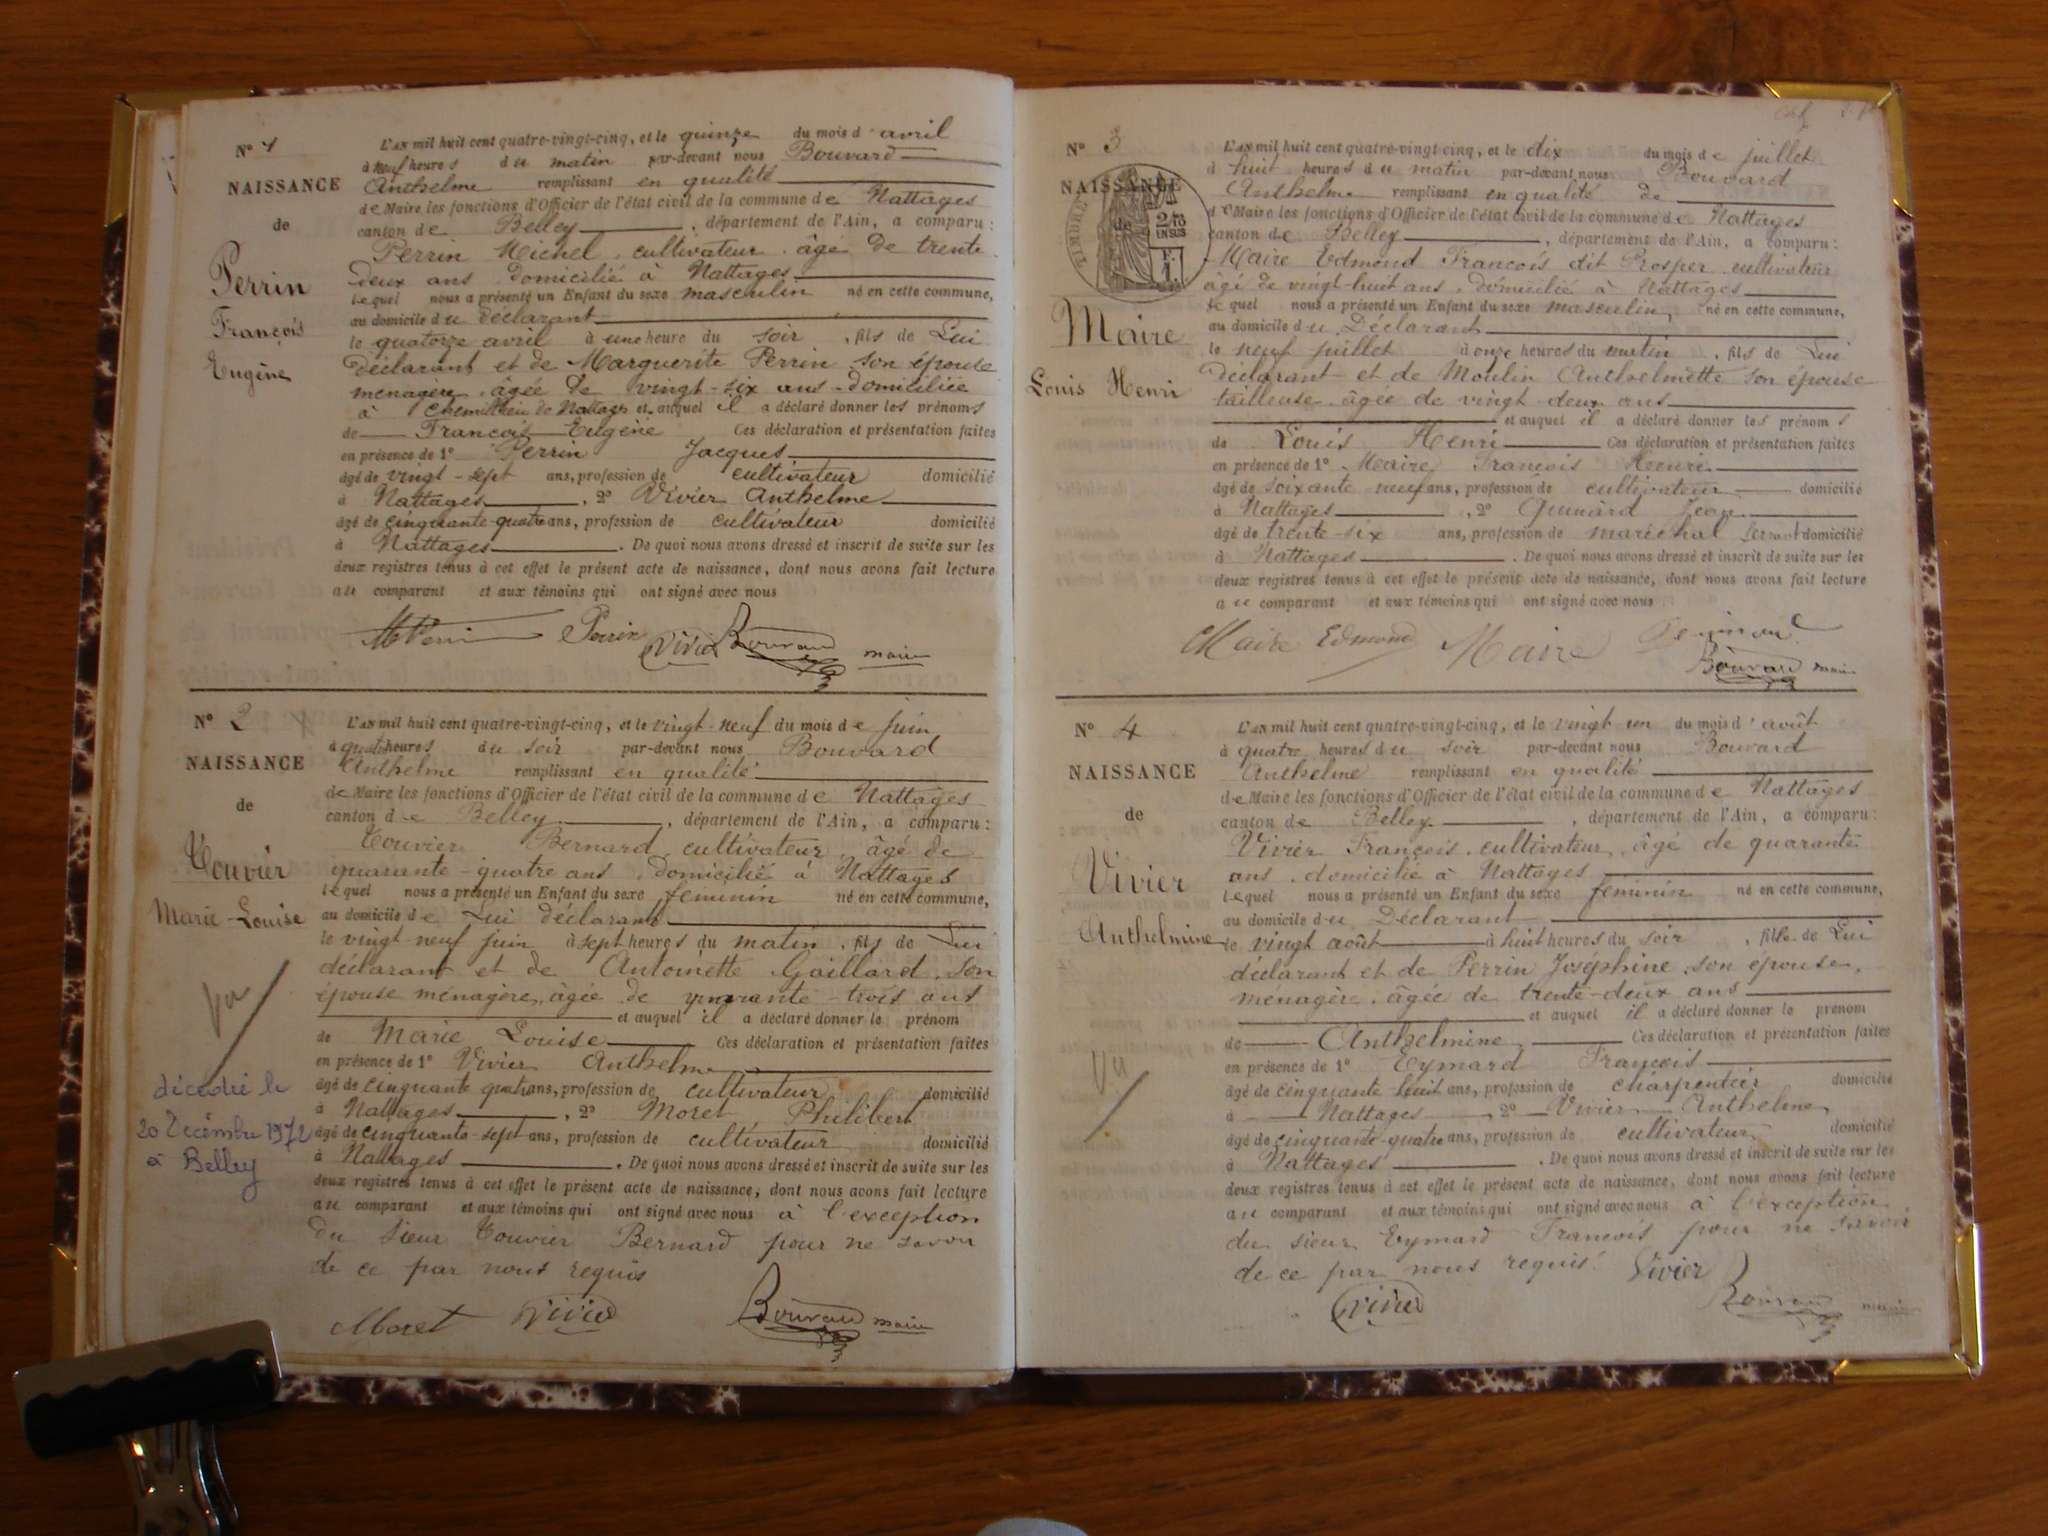 N° 1
NAISSANCE
de
Perrin
François
Eugène
L'AN mil huit cent quatre-vingt-cinq, et le quinze du mois d'avril
à neuf heures du matin par-devant nous Bouvard
Anthelme remplissant en qualité
de Maire les fonctions d'Officier de l'état civil de la commune de Nattages
canton de Belley, département de l'Ain, a comparu :
Perrin Michel, cultivateur, âgé de trente
deux ans, domicilié à Nattages
lequel nous a présenté un Enfant du sexe masculin né en cette commune,
au domicile du déclarant
le quatorze avril à une heure du soir, fils de Lui
déclarant et de Marguerite Perrin son épouse
ménagère, âgée de vingt-six ans domiciliée
à de Nattages et auquel il a déclaré donner les prénoms
de François Eugène Ces déclaration et présentation faites
en présence de 1° Perrin Jacques
âgé de vingt-sept ans, profession de cultivateur domicilié
à Nattages, 2° Vivier Anthelme
âgé de cinquante-quatre ans, profession de cultivateur domicilié
à Nattages. De quoi nous avons dressé et inscrit de suite sur les
deux registres tenus à cet effet le présent acte de naissance, dont nous avons fait lecture
au comparant et aux témoins qui ont signé avec nous
Perrin Vivier Bouvard maire
N° 2
NAISSANCE
de
Touvier
Marie-Louise
Vu
décédée le
20 Décembre 1972
à Belley
L'AN mil huit cent quatre-vingt-cinq, et le vingt-neuf du mois de juin
à quatre heures du soir par-devant nous Bouvard
Anthelme remplissant en qualité
de Maire les fonctions d'Officier de l'état civil de la commune de Nattages
canton de Belley, département de l'Ain, a comparu :
Touvier Bernard, cultivateur, âgé de
quarante-quatre ans, domicilié à Nattages
lequel nous a présenté un Enfant du sexe féminin né en cette commune,
au domicile de Lui déclarant
le vingt neuf juin à sept heures du matin, fils de Lui
déclarant et de Antoinette Gaillard, son
épouse ménagère, âgée de quarante-trois ans
et auquel il a déclaré donner le prénom
de Marie Louise Ces déclaration et présentation faites
en présence de 1° Vivier Anthelme
âgé de cinquante quatre ans, profession de cultivateur domicilié
à Nattages, 2° Moret Philibert
âgé de cinquante-sept ans, profession de cultivateur domicilié
à Nattages. De quoi nous avons dressé et inscrit de suite sur les
deux registres tenus à cet effet le présent acte de naissance, dont nous avons fait lecture
au comparant et aux témoins qui ont signé avec nous à l'exception
du Sieur Touvier Bernard pour ne savoir
de ce par nous requis
Moret Vivier Bouvard maire
N° 3
NAISSANCE
de
TIMBRE
Maire
Louis Henri
L'AN mil huit cent quatre-vingt-cinq, et le dix du mois de juillet
à huit heures du matin par-devant nous Bouvard
Anthelme remplissant en qualité de
de Maire les fonctions d'Officier de l'état civil de la commune de Nattages
canton de Belley, département de l'Ain, a comparu :
Maire Edmond François dit Prosper cultivateur
âgé de vingt-huit ans, domicilié à Nattages
lequel nous a présenté un Enfant du sexe masculin, né en cette commune,
au domicile du Déclarant
le neuf juillet à onze heures du matin, fils de Lui
déclarant et de Moulin Anthelmette son épouse
tailleuse, âgée de vingt-deux ans
et auquel il a déclaré donner les prénoms
de Louis Henri Ces déclaration et présentation faites
en présence de 1° Maire François Henri
âgé de soixante neuf ans, profession de cultivateur domicilié
à Nattages, 2° Jean
âgé de trente-six ans, profession de maréchal ferrant domicilié
à Nattages. De quoi nous avons dressé et inscrit de suite sur les
deux registres tenus à cet effet le présent acte de naissance, dont nous avons fait lecture
au comparant et aux témoins qui ont signé avec nous
Maire Edmond Maire
Bouvard maire
N° 4
NAISSANCE
de
Vivier
Anthelmine
Vu
L'AN mil huit cent quatre-vingt-cinq, et le vingt un du mois d'août
à quatre heures du soir par-devant nous Bouvard
Anthelme remplissant en qualité
de Maire les fonctions d'Officier de l'état civil de la commune de Nattages
canton de Belley, département de l'Ain, a comparu :
Vivier François, cultivateur, âgé de quarante
ans, domicilié à Nattages
lequel nous a présenté un Enfant du sexe féminin né en cette commune,
au domicile du Déclarant
le vingt août à huit heures du soir, fille de Lui
déclarant et de Perrin Joséphine, son épouse,
ménagère, âgée de trente-deux ans
et auquel il a déclaré donner le prénom
de Anthelmine Ces déclaration et présentation faites
en présence de 1° Eymard François
âgé de cinquante huit ans, profession de charpentier domicilié
à Nattages 2° Vivier Anthelme
âgé de cinquante-quatre ans, profession de cultivateur domicilié
à Nattages. De quoi nous avons dressé et inscrit de suite sur les
deux registres tenus à cet effet le présent acte de naissance, dont nous avons fait lecture
au comparant et aux témoins qui ont signé avec nous à l'exception
du sieur Eymard François pour ne savoir
de ce par nous requis. Vivier
Vivier Bouvard maire